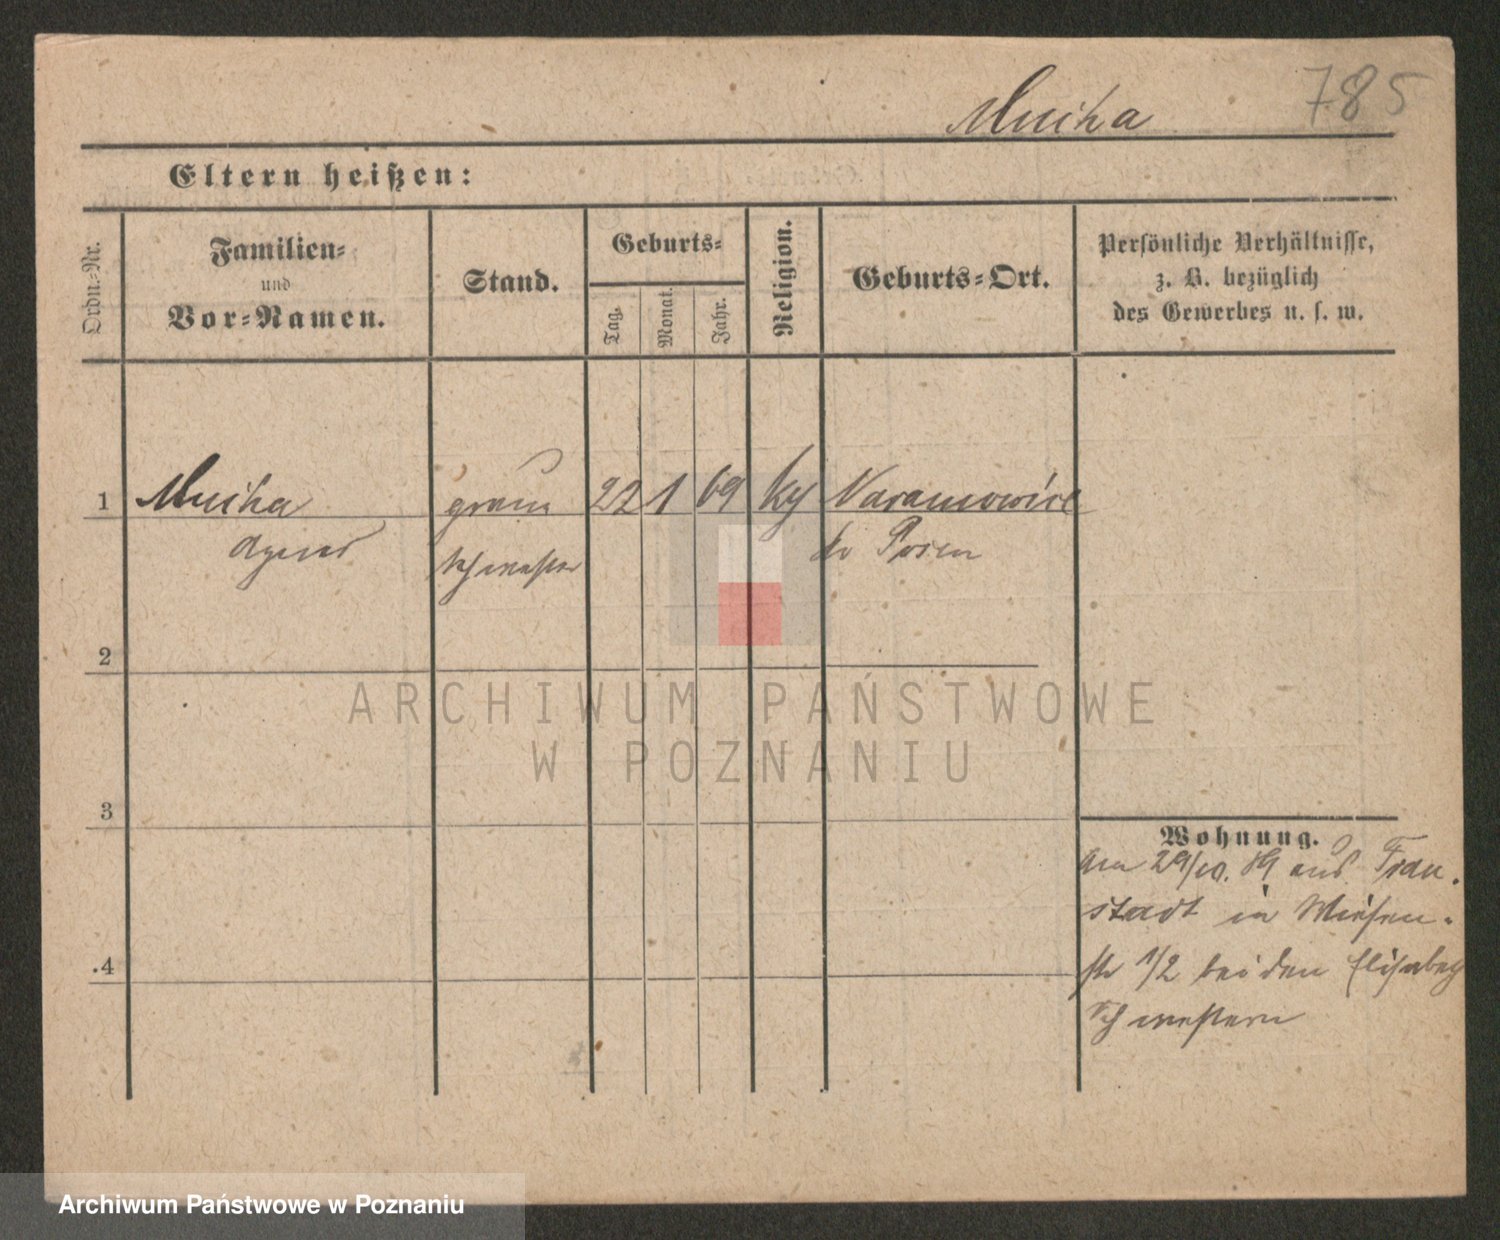 Mucha 785
Eltern heißen:
Ordn.-Nr.
Familien-
und
Vor-Namen.
Stand.
Geburts-
Tag.
Monat.
Jahr.
Religion.
Geburts-Ort.
Persönliche Verhältnisse,
z. B. bezüglich
des Gewerbes u. s. w.
1 Mucha graue 22 1 69 Naramowice
Agnes Schwester Posen
2
3
4
Wohnung.
Am 29/10. 89 aus Frau-
stadt in Wiesen-
str 1/2 bei den Elisabeth
Schwestern
ARCHIWUM PAŃSTWOWE
W POZNANIU
Archiwum Państwowe w Poznaniu